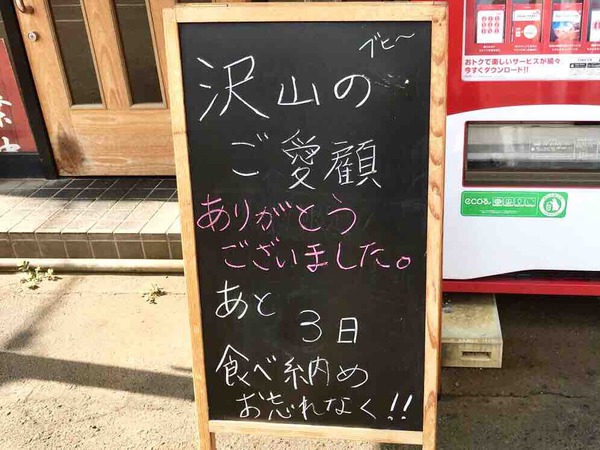 ブヒ〜
沢山の
ご愛顧
ありがとう
ございました。
あと
3日
食べ納め
お忘れなく!!
おトクで楽しいサービスが続々
今すぐダウンロード!!
eco